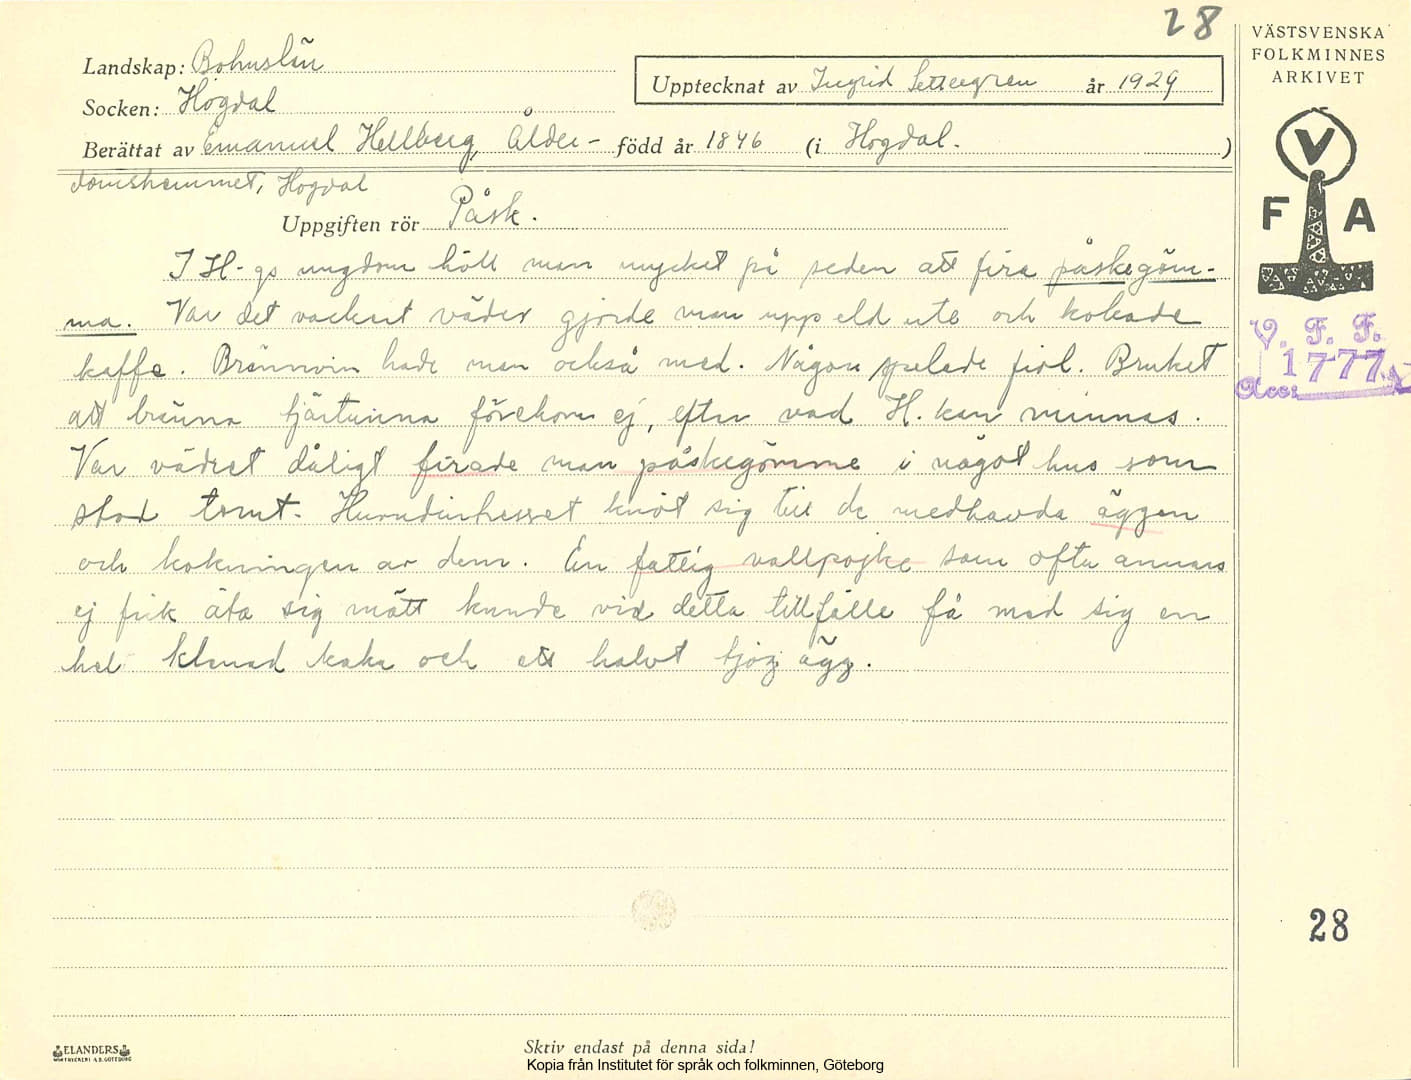 28
Landskap: Bohuslän
Upptecknat av Ingrid Settergren år 1929
Socken: Hogdal
Berättat av Emanuel Hellberg, Ålder- född år 1846 (i Hogdal. )
domshemmet, Hogdal
Uppgiften rör Påsk.
I H-gs ungdom höll man mycket på seden att fira påskegöm-
ma. Var det vackert väder gjorde man upp eld ute och kokade
kaffe. Brännvin hade man också med. Någon spelade fiol. Bruket
att bränna tjärtunna förekom ej, efter vad H. kan minnas.
Var vädret dåligt firade man påskegömme i något hus som
stod tomt. Huvudintresset knöt sig till de medhavda äggen
och kokningen av dem. En fattig vallpojke som ofta annars
ej fick äta sig mätt kunde vid detta tillfälle få med sig en
hel klenad kaka och ett halvt tjog ägg.
VÄSTSVENSKA
FOLKMINNES
ARKIVET
V
F A
V. F. F.
1777
Acc:
28
ELANDERS
Skriv endast på denna sida!
Kopia från Institutet för språk och folkminnen, Göteborg